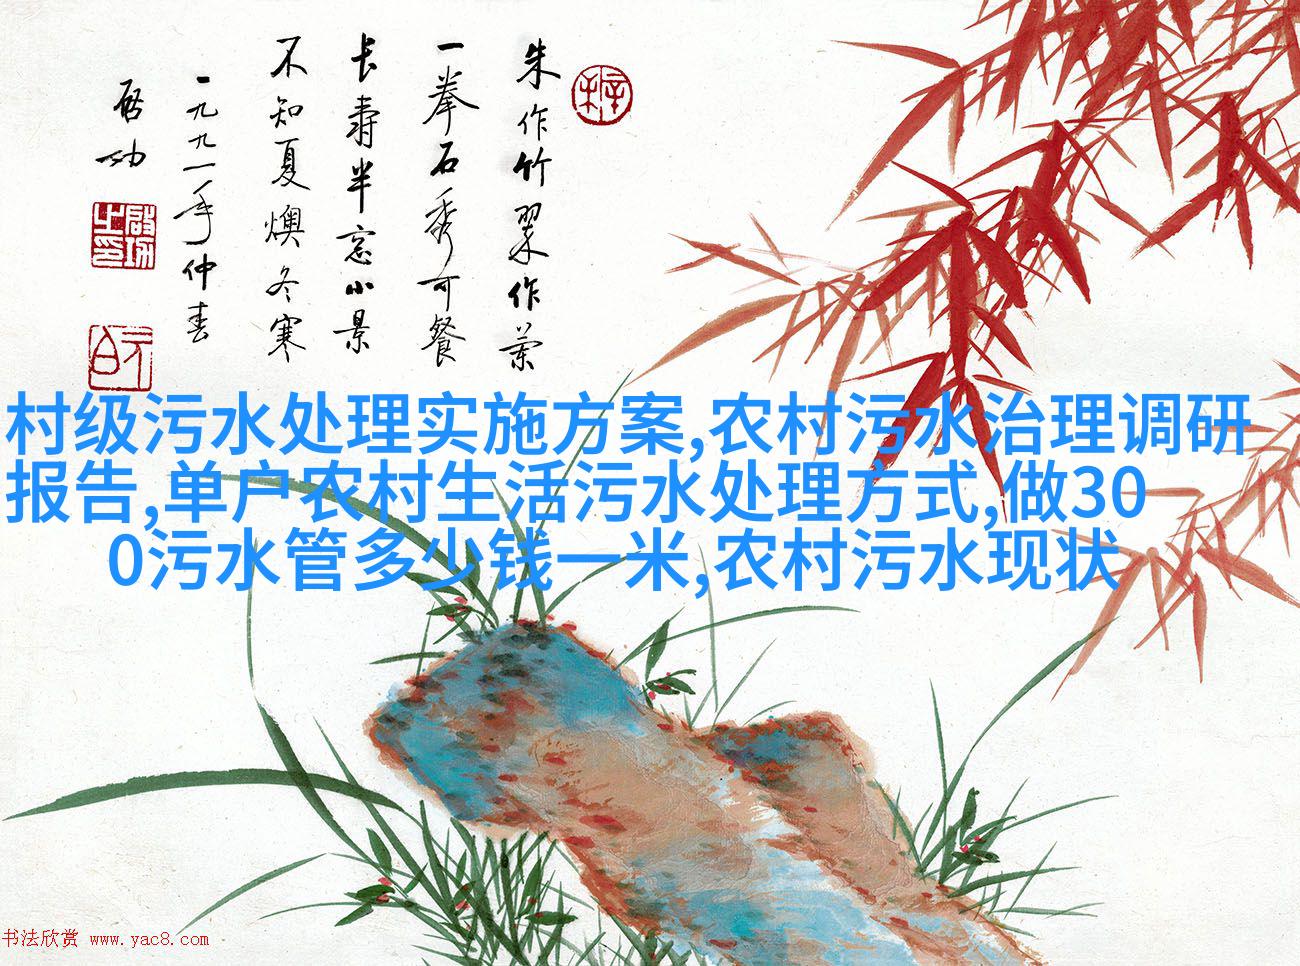 朱作竹翠作兰
一拳石秀可餐
长寿半窗小景
不知夏燠冬寒
一九九一年仲春
启功
村级污水处理实施方案,农村污水治理调研
报告,单户农村生活污水处理方式,做30
0污水管多少钱一米,农村污水现状
书法欣赏 www.yac8.com